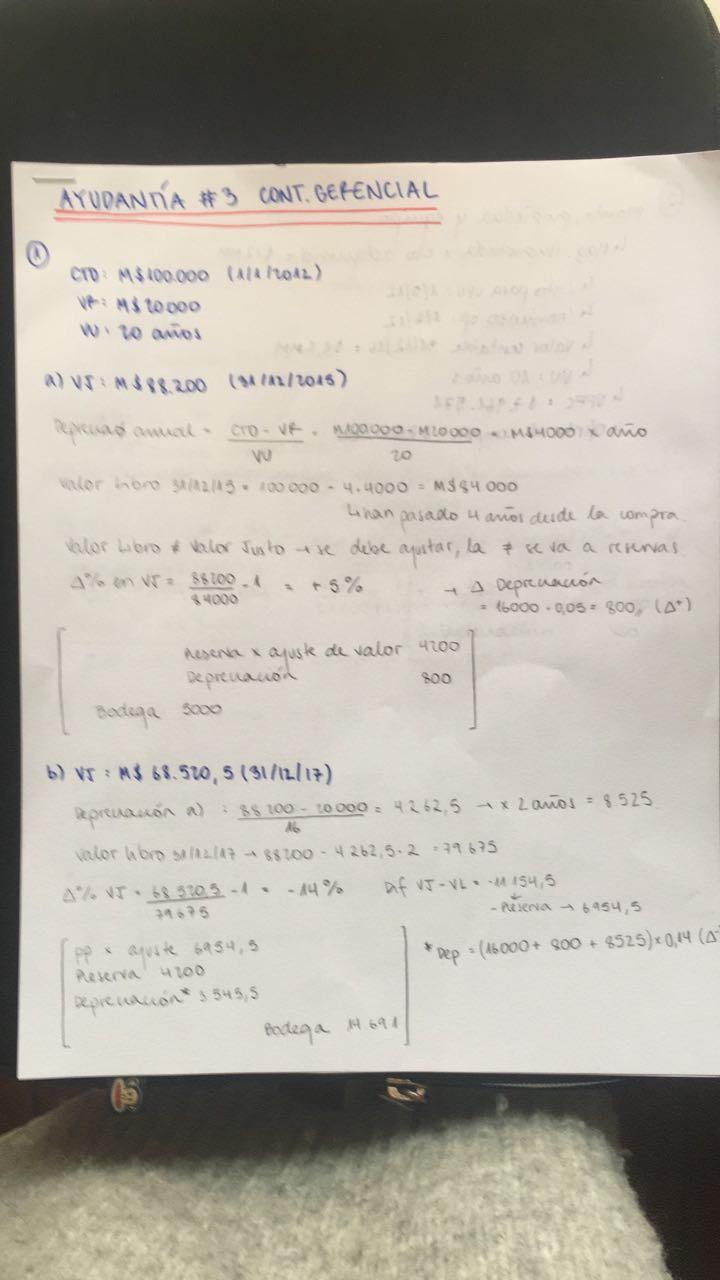 AYUDANTÍA #3 CONT. GERENCIAL
①
CTO: M$100.000 (1/1/2012)
VR: M$20000
VU: 20 años
a) VJ: M$88.200 (31/12/2015)
Depreciacó anual = CTO - VR = M100000 - M20000 = M$4000 x año
VU 20
Valor libro 31/12/15 = 100000 - 4.4000 = M$84000
↳ han pasado 4 años desde la compra.
Valor Libro ≠ Valor Justo → se debe ajustar, la ≠ se va a reservas.
Δ% en VJ = 88200 - 1 = +5% → Δ Depreciación
84000 = 16000 · 0,05 = 800, (Δ⁺)
Reserva x ajuste de valor 4200
Depreciación 800
Bodega 5000
b) VJ: M$ 68.520,5 (31/12/17)
Depreciación a) : 88200 - 20000 = 4262,5 → x 2 años = 8.525
16
Valor libro 31/12/17 → 88200 - 4262,5·2 = 79675
Δ% VJ = 68520,5 - 1 = -14% Dif VJ - VL = -11154,5
79675 - Reserva → 6954,5
pp x ajuste 6954,5
Reserva 4200
Depreciación* 3545,5
Bodega 14.691
* Dep = (16000 + 800 + 8525) x 0,14 (Δ